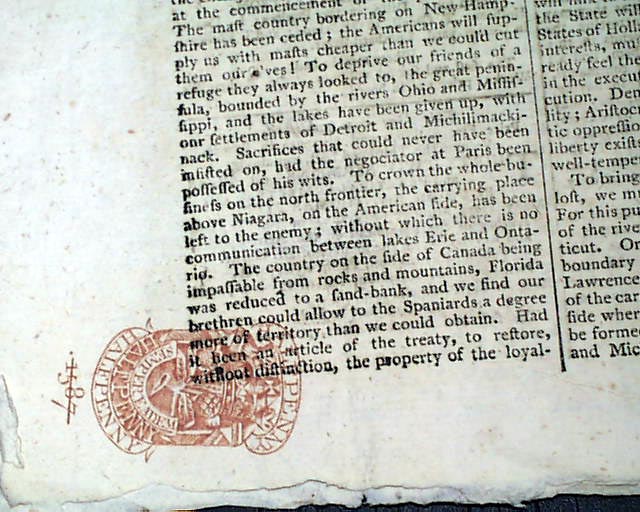 at the commencement of the
The mast country bordering on New-Hamp-
shire has been ceded; the Americans will sup-
ply us with masts cheaper than we could cut
them ourselves! To deprive our friends of a
refuge they always looked to, the great penin-
sula, bounded by the rivers Ohio and Missis-
sippi, and the lakes have been given up, with
our settlements of Detroit and Michilimacki-
nack. Sacrifices that could never have been
insisted on, had the negociator at Paris been
possessed of his wits. To crown the whole bu-
siness on the north frontier, the carrying place
above Niagara, on the American side, has been
left to the enemy; without which there is no
communication between lakes Erie and Onta-
rio. The country on the side of Canada being
impassable from rocks and mountains, Florida
was reduced to a sand-bank, and we find our
brethren could allow to the Spaniards a degree
more of territory than we could obtain. Had
it been an article of the treaty, to restore,
without distinction, the property of the loyal-
the State will
States of Holl
Interests, mu
ready feel the
in the execu
cution. Den
lity; Aristoc
tic oppressio
liberty exists
well-tempe
To bring
lost, we mu
For this pu
of the rive
ticut. On
boundary
Lawrence
of the car
side wher
be forme
and Mic
HALFPENNY
587